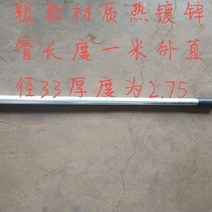 粗款材质热镀锌
管长度一米外直
径33厚度为2.75